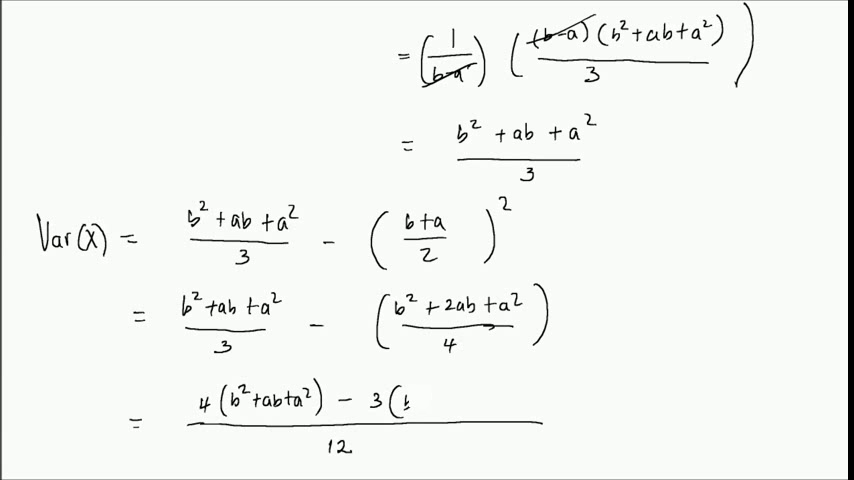 = (1/(b-a)) ((b-a)(b²+ab+a²)/3)
= (b² + ab + a²)/3
Var(X) = (b²+ab+a²)/3 - ((b+a)/2)²
= (b²+ab+a²)/3 - ((b²+2ab+a²)/4)
= (4(b²+ab+a²) - 3(b)/12